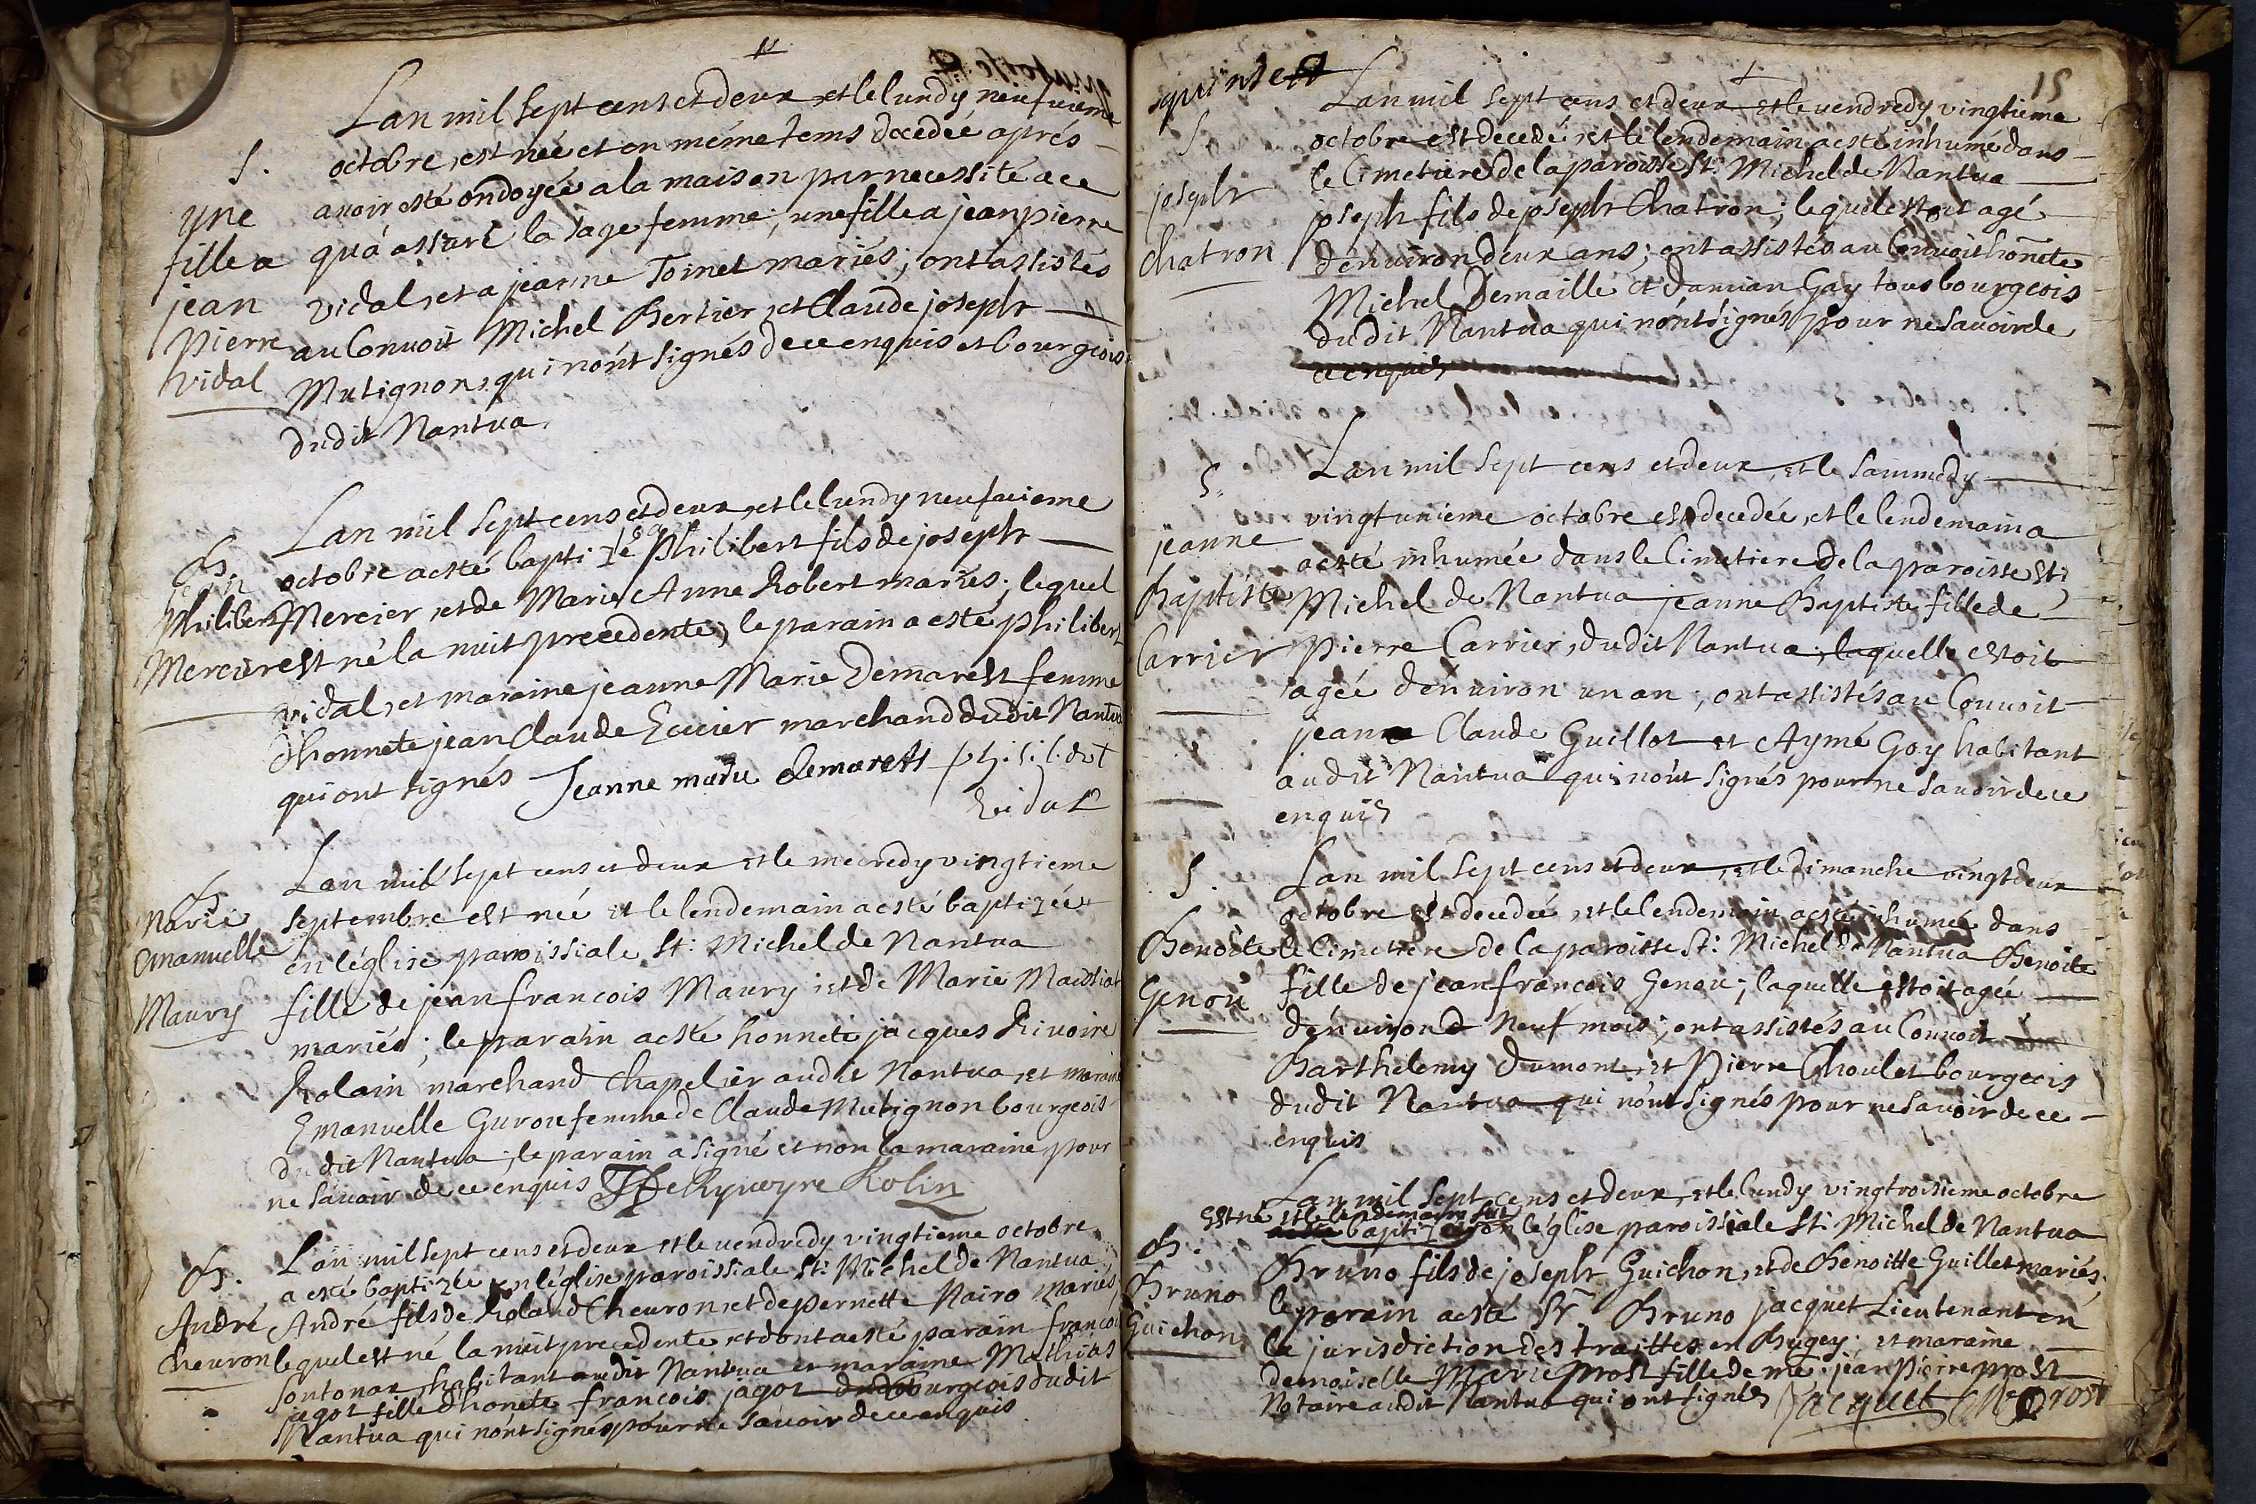 S.
une
fille a
jean
Pierre
vidal
Lan mil sept cens et deux et le lundy neufuieme
octobre, est née et en méme tems decedée aprés
auoir esté ondoyée a la maison par necessité a ce
qu'a assuré la sage femme, une fille a jean pierre
vidal, et a jeanne Tornet mariés; ont assistés
au Conuoit Michel Bertier, et Claude joseph
Mutignon, qui n'ont signés de ce enquis et bourgeois
dudit Nantua
B.
Philibert
Mercier
Lan mil sept cens et deux, et le lundy neufuieme
octobre a esté baptizé Philibert fils de joseph
Mercier, et de Marie Anne Robert mariés; lequel
est né la nuit precedente, le parain a esté philibert
vidal, et maraine jeanne Marie Demarest femme
d'honnete jean Claude Ecuier marchand dudit Nantua
qui ont signés Jeanne marie demarest philibert
vidal
B.
Marie
Emanuelle
Maury
Lan mil sept cens et deux et le mecredy vingtieme
septembre est née et le lendemain a esté baptizée
en l'église paroissiale St. Michel de Nantua
fille de jean francois Maury et de Marie
mariés; le parain a esté honnete jacques Riuoire
Rolain marchand Chapelier audit Nantua, et maraine
Emanuelle Guron femme de Claude Mutignon bourgeois
dudit Nantua, le parain a signé et non la maraine pour
ne sauoir de ce enquis Rolin
B.
André
cheuron
Lan mil sept cens et deux et le vendredy vingtieme octobre
a esté baptizée en l'église paroissiale St. Michel de Nantua
André fils de Roland Cheuron, et de pernette Nairo mariés,
lequel est né la nuit precedente, et dont a esté parain francois
sontonax habitant audit Nantua et maraine Mathias
jagot fille d'honete francois jagot bourgeois dudit
Nantua qui n'ont signés pour ne sauoir de ce enquis
15
S.
joseph
chatron
Lan mil sept cens et deux et le vendredy vingtieme
octobre est decedé, et le lendemain a esté inhumé dans
le Cimetiere de la paroisse St. Michel de Nantua
joseph fils de joseph Chatron; lequel estoit agé
d'enuiron deux ans; ont assistés au Conuoit honnete
Michel Demaille et Damian Gay tous bourgeois
dudit Nantua qui n'ont signés pour ne sauoir de
ce enquis
S.
jeanne
Baptiste
Carrier
Lan mil sept cens et deux, et le sammedy
vingtunieme octobre est decedée, et le lendemain a
esté inhumée dans le Cimetiere de la paroisse St.
Michel de Nantua jeanne Baptiste fille de
Pierre Carrier, dudit Nantua, laquelle estoit
agée d'enuiron un an; ont assistés au Conuoit
jean Claude Guillot et Aymé Goy habitant
audit Nantua qui n'ont signés pour ne sauoir de ce
enquis
S.
Benoite
Genou
Lan mil sept cens et deux, et le Dimanche vingtdeux
octobre est decedée, et le lendemain a esté inhumée dans
le Cimetiere de la paroisse St. Michel de Nantua Benoite
fille de jean francois Genou; laquelle estoit agée
d'enuiron neuf mois; ont assistés au Conuoit
Barthelemy Dumont, et Pierre Choulet bourgeois
dudit Nantua qui n'ont signés pour ne sauoir de ce
enquis
B.
Bruno
Guichon
Lan mil sept cens et deux, et le lundy vingtroisieme octobre
est né et le lendemain fut
a esté baptizé en l'église paroissiale St. Michel de Nantua
Bruno fils de joseph Guichon, et de Benoitte Guillet mariés.
le parain a esté Sr. Bruno jacquet Lieutenant en
la jurisdiction des traittes en Bugey; et maraine
demoiselle Marie Prost fille de me. jean Pierre prost
Notaire audit Nantua qui ont signés Jacquet M Prost